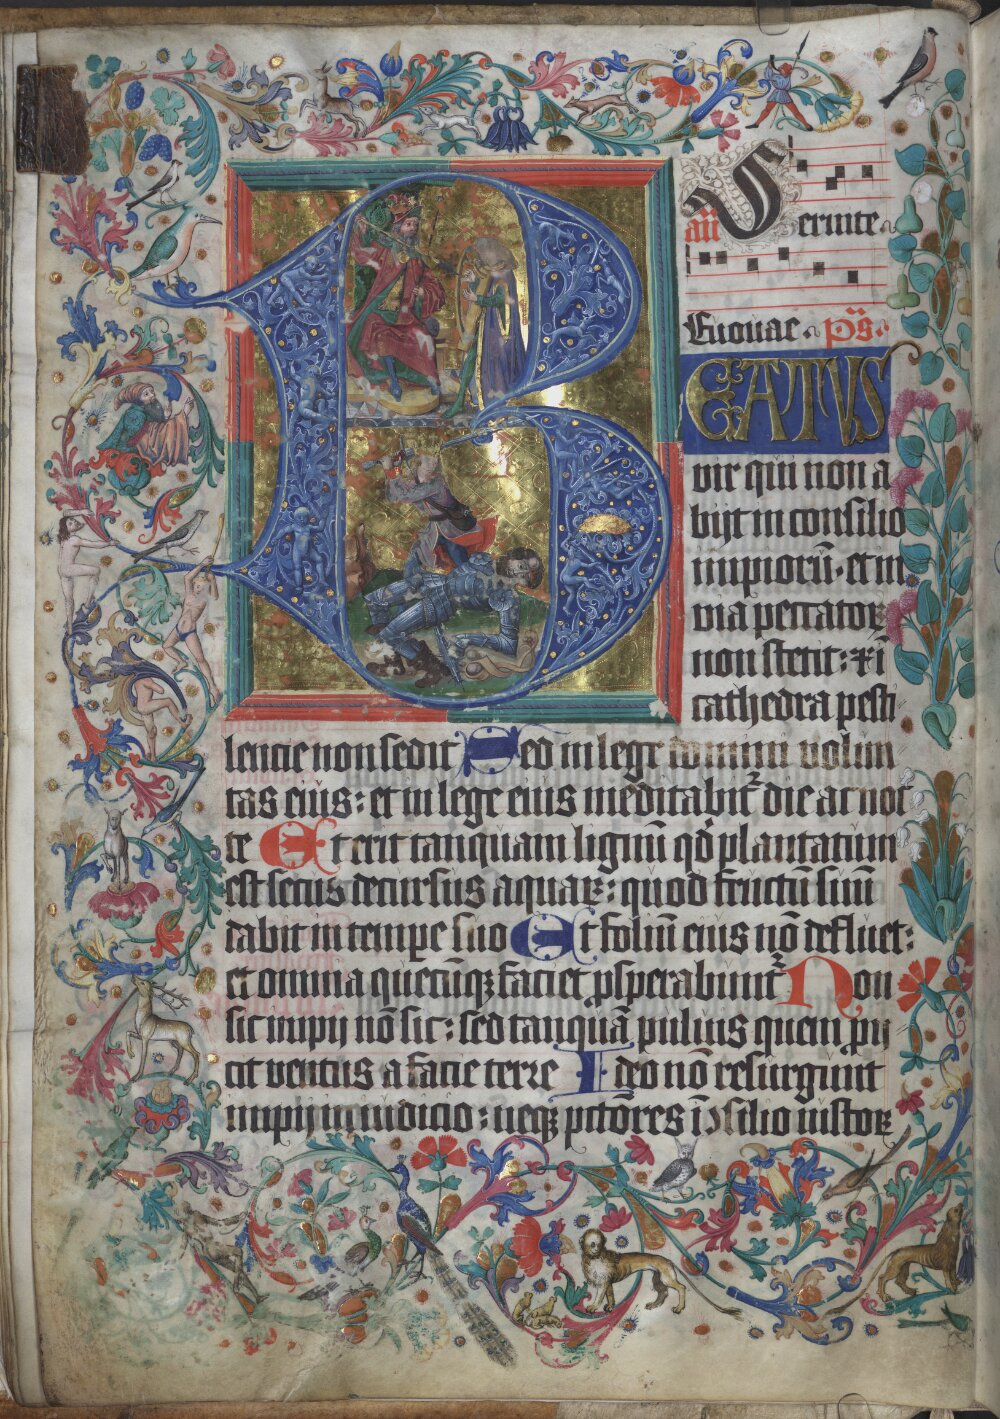 an̄ Seruite
Euouae. ps̄.
BEATVS
vir qui non a
bijt in consilio
impiorū. et in
via peccatoꝝ
non stetit: et ī
cathedra pesti
lencie non sedit Sed in lege domini volun
tas eius: et in lege eius meditabit᷑ die ac noc
te Et erit tanquam lignū qd̄ plantatum
est secus decursus aquaꝝ: quod fructū suū
dabit in temꝑe suo Et foliū eius nō defluet:
et omnia quecūqꝫ faciet ꝓsperabunt᷑ Non
sic impij nō sic: sed tanquā puluis quem ꝓij
cit ventus a facie terre Ideo nō resurgunt
impij in iudicio: neqꝫ pctōres ī ꝯsilio iustoꝝ